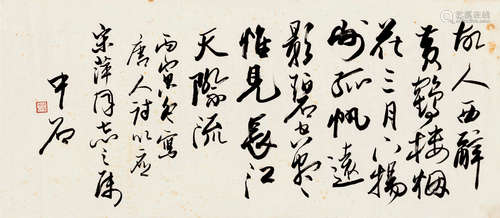 故人西辭
黃鶴樓烟
花三月下揚
州孤帆遠
影碧空盡
惟見長江
天際流
丙寅冬寫
唐人詩以應
宗萍同志之属
中石